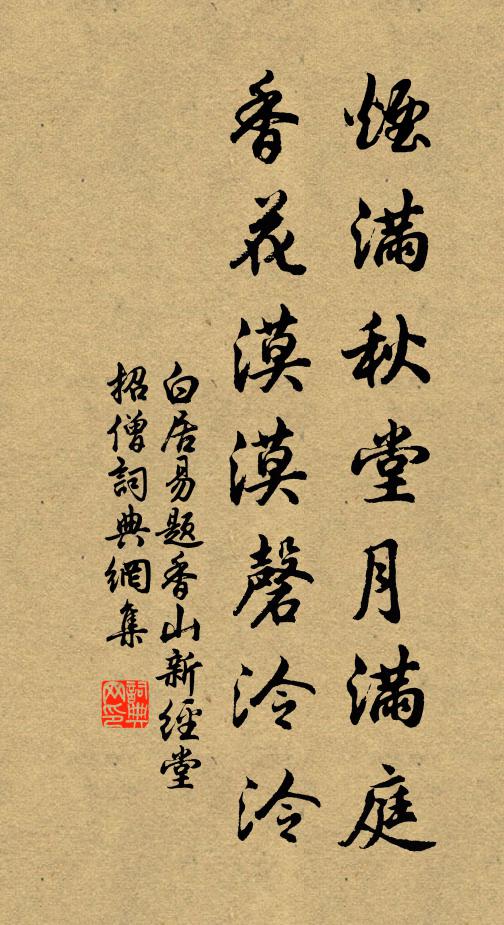 煙滿秋堂月滿庭
香花漠漠磬泠泠
白居易題香山新經堂
招僧詞典網集
詞典网印